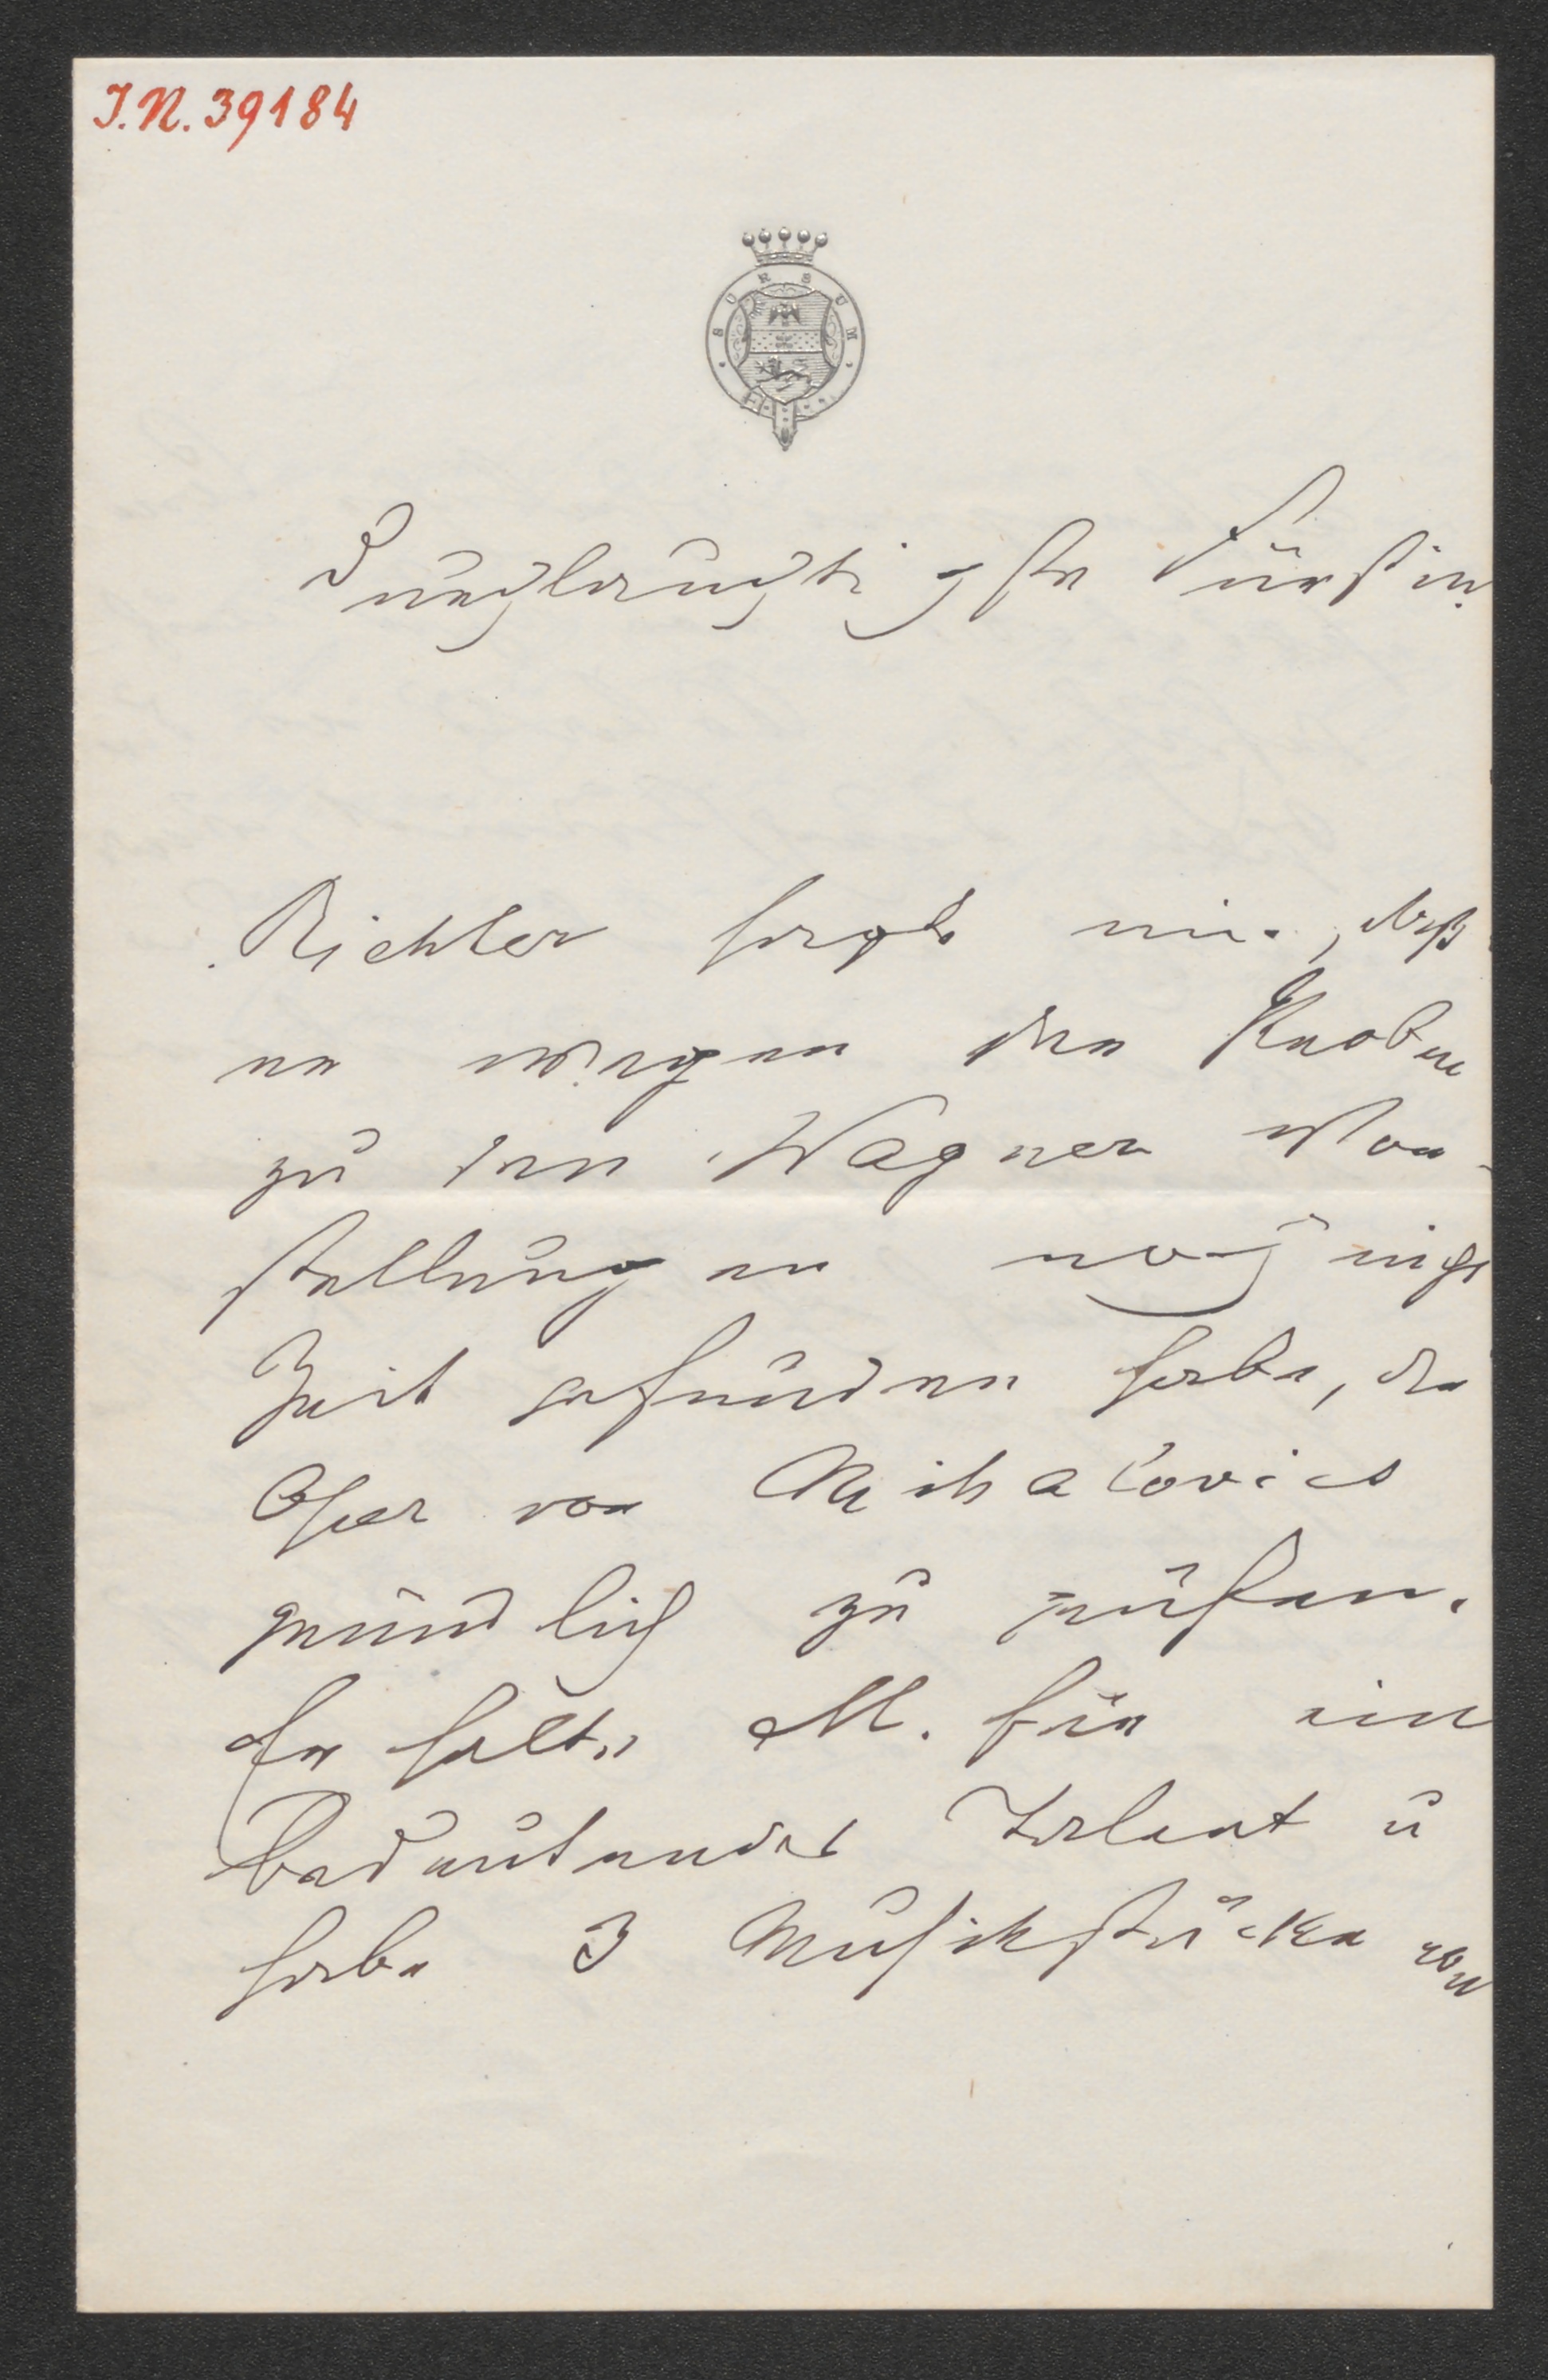 I.N. 39184
SURSUM
Durchlauchtigste Fürstin.
Richter sagte mir, daß
er wegen der Proben
zu den Wagner Vor-
stellungen noch nicht
Zeit gefunden habe, die
Oper von Mihalovics
gründlich zu prüfen.
Er halte M. für ein
bedeutendes Talent u
habe 3 Musikstücke von